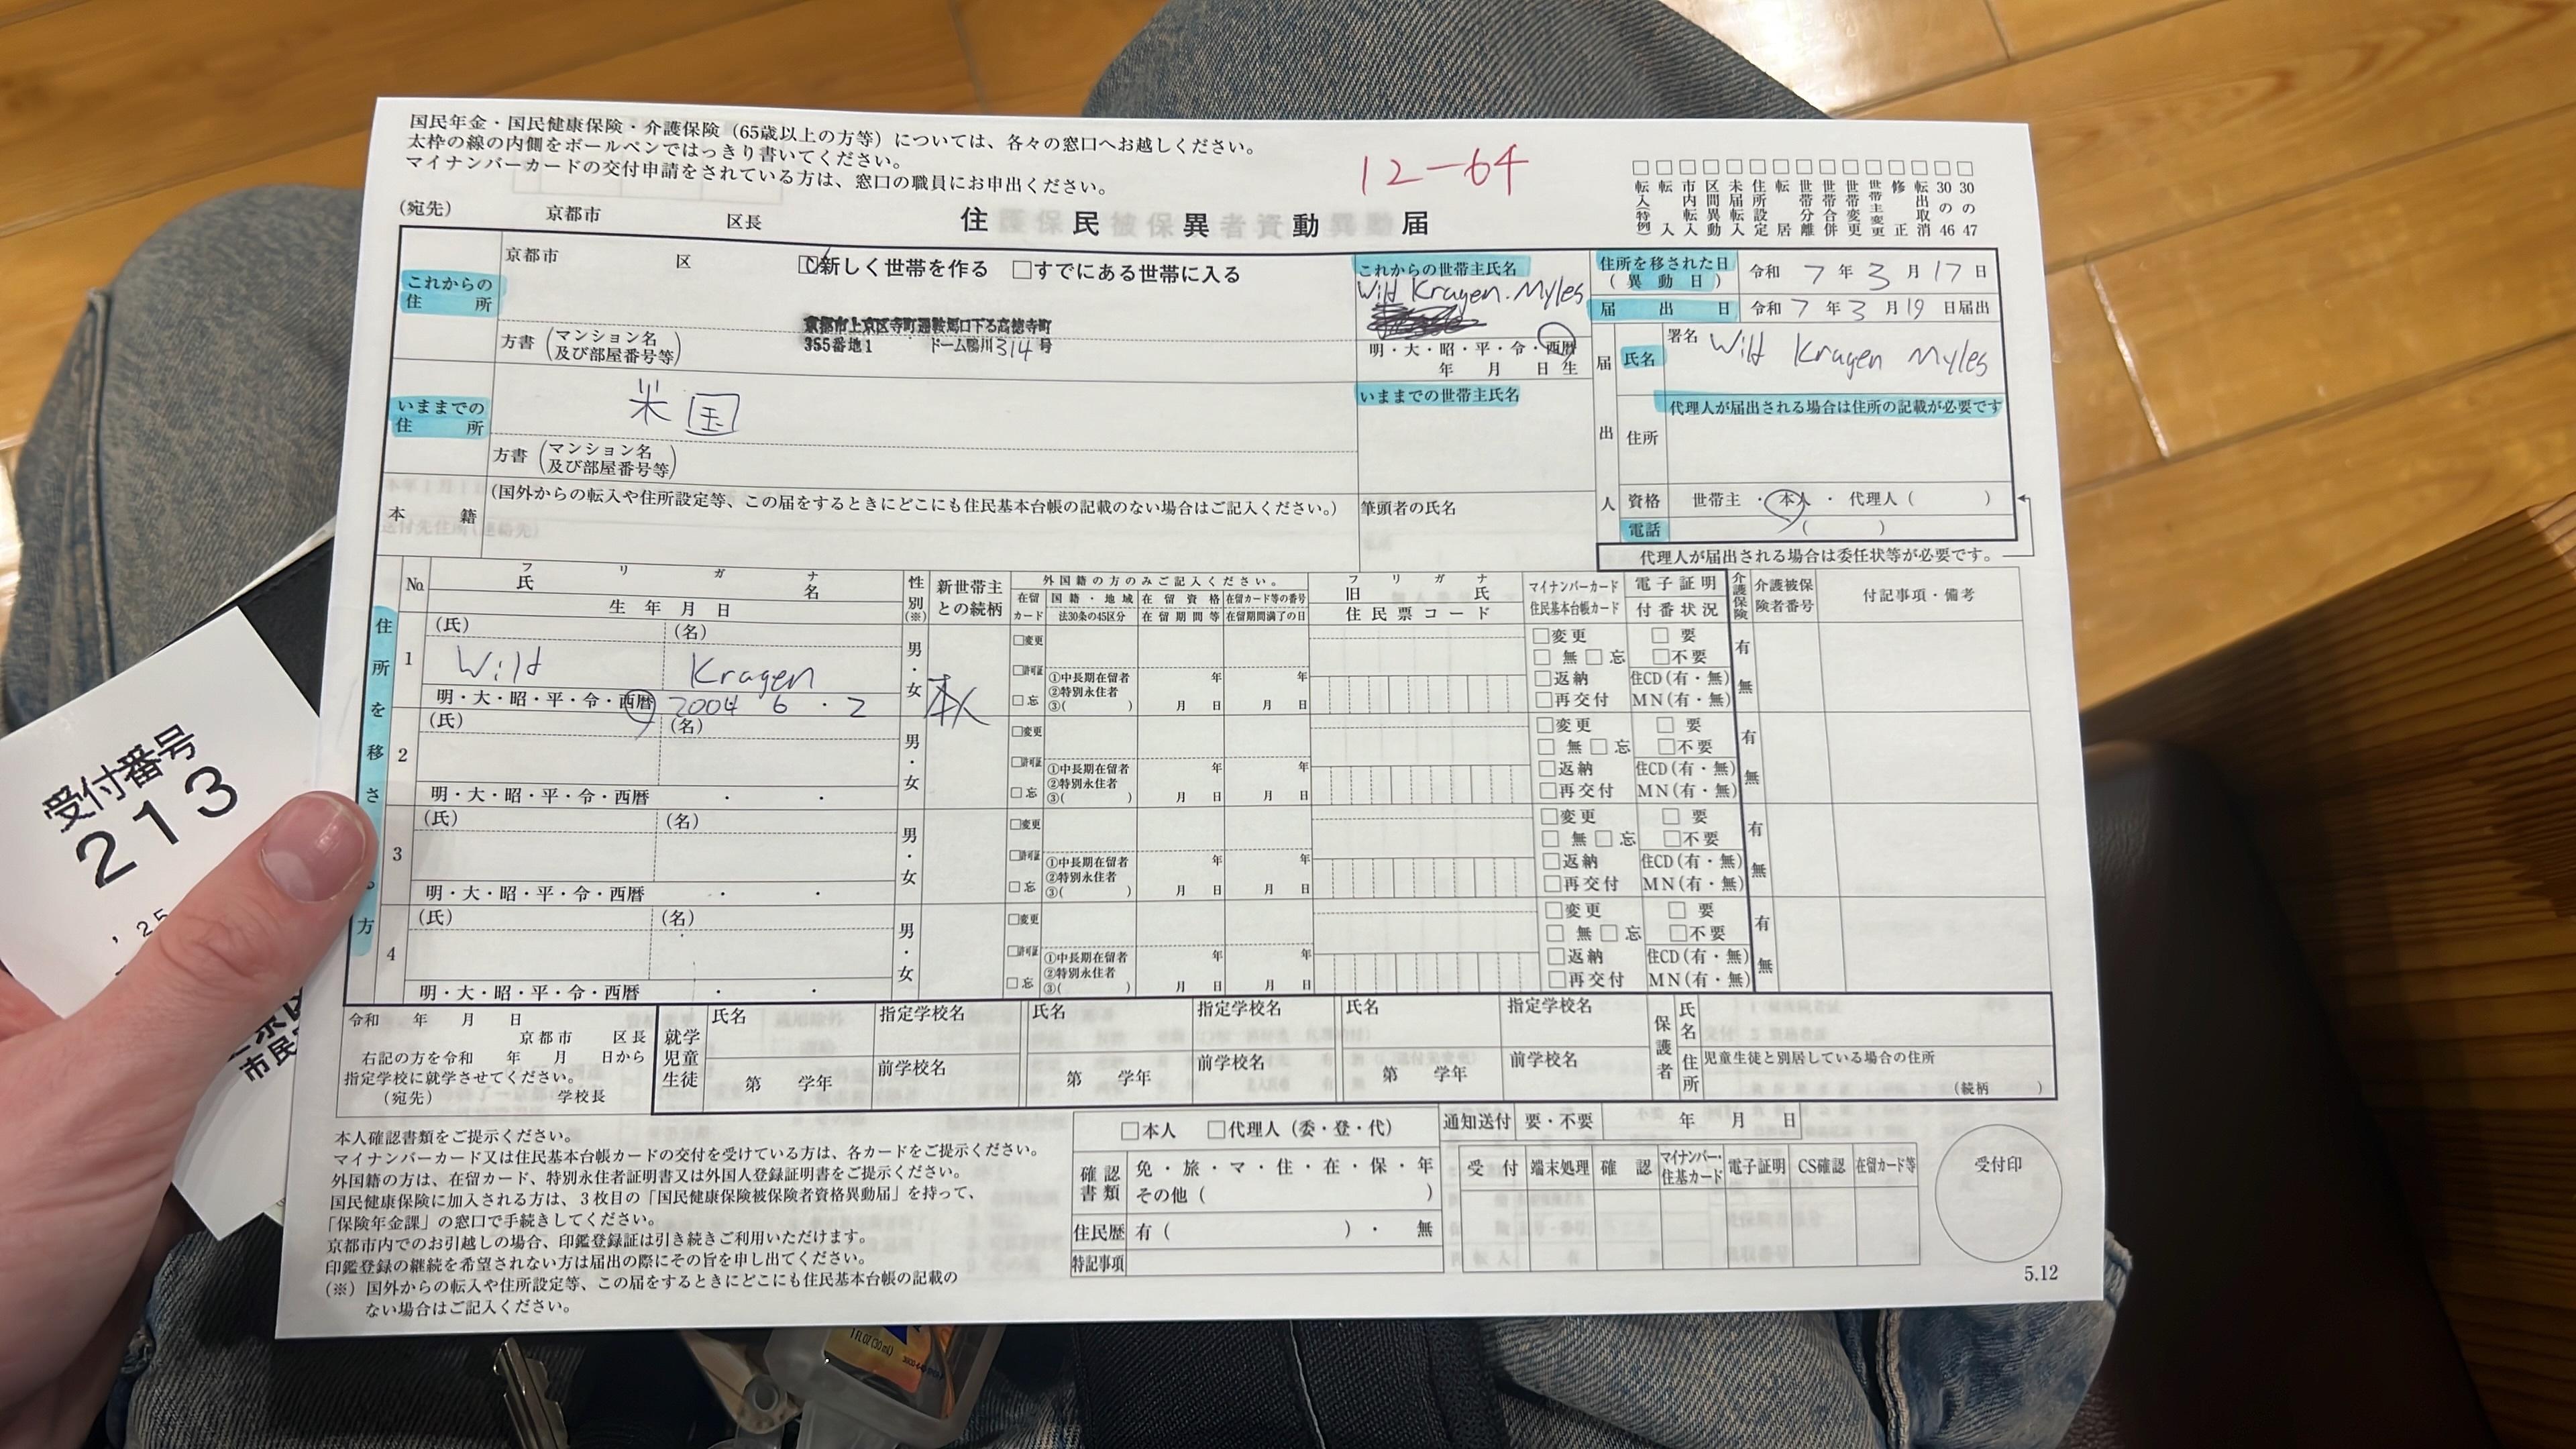 国民年金・国民健康保険・介護保険（65歳以上の方等）については、各々の窓口へお越しください。
太枠の線の内側をボールペンではっきり書いてください。
マイナンバーカードの交付申請をされている方は、窓口の職員にお申出ください。
12-64
□転入(特例) □転入 □市内転入 □区間異動 □未届転入 □住所設定 □転居 □世帯分離 □世帯合併 □世帯変更 □世帯主変更 □修正 □転出取消 □30の46 □30の47
（宛先） 京都市 区長
住民異動届
これからの住所
京都市 区
□新しく世帯を作る □すでにある世帯に入る
京都市上京区寺町通鞍馬口下る高徳寺町
355番地1 ドーム鴨川314号
方書（マンション名及び部屋番号等）
これからの世帯主氏名
Wild Kragen. Myles
明・大・昭・平・令・西暦
年 月 日生
住所を移された日（異動日） 令和 7年 3月 17日
届出日 令和 7年 3月 19日届出
いままでの住所
米国
方書（マンション名及び部屋番号等）
いままでの世帯主氏名
届出人
氏名 署名 Wild Kragen Myles
代理人が届出される場合は住所の記載が必要です
住所
資格 世帯主・本人・代理人（ ）
電話 （ ）
代理人が届出される場合は委任状等が必要です。
本籍
（国外からの転入や住所設定等、この届をするときにどこにも住民基本台帳の記載のない場合はご記入ください。）
筆頭者の氏名
住所を移さ 方
No. フリガナ 氏名 生年月日
性別(※)
新世帯主との続柄
外国籍の方のみご記入ください。
在留カード 国籍・地域 法30条の45区分 在留資格 在留期間等 在留カード等の番号 在留期間満了の日
フリガナ 旧氏 住民票コード
マイナンバーカード 住民基本台帳カード
電子証明 付番状況
介護保険 介護被保険者番号 付記事項・備考
1 （氏） Wild （名） Kragen
明・大・昭・平・令・西暦 2004 6 . 2
男・女 本人
□変更 □許可証 □忘 ①中長期在留者 ②特別永住者 ③( ) 年 月 日 年 月 日
□変更 □無 □忘 □返納 □再交付 □要 □不要 住CD(有・無) MN(有・無) 有・無
2 （氏） （名）
明・大・昭・平・令・西暦 ・ ・
男・女
□変更 □許可証 □忘 ①中長期在留者 ②特別永住者 ③( ) 年 月 日 年 月 日
□変更 □無 □忘 □返納 □再交付 □要 □不要 住CD(有・無) MN(有・無) 有・無
3 （氏） （名）
明・大・昭・平・令・西暦 ・ ・
男・女
□変更 □許可証 □忘 ①中長期在留者 ②特別永住者 ③( ) 年 月 日 年 月 日
□変更 □無 □忘 □返納 □再交付 □要 □不要 住CD(有・無) MN(有・無) 有・無
4 （氏） （名）
明・大・昭・平・令・西暦 ・ ・
男・女
□変更 □許可証 □忘 ①中長期在留者 ②特別永住者 ③( ) 年 月 日 年 月 日
□変更 □無 □忘 □返納 □再交付 □要 □不要 住CD(有・無) MN(有・無) 有・無
令和 年 月 日
京都市 区長
右記の方を令和 年 月 日から
指定学校に就学させてください。
（宛先） 学校長
就学児童生徒
氏名 指定学校名 氏名 指定学校名 氏名 指定学校名
第 学年 前学校名 第 学年 前学校名 第 学年 前学校名
保護者 氏名
住所 児童生徒と別居している場合の住所
（続柄 ）
本人確認書類をご提示ください。
マイナンバーカード又は住民基本台帳カードの交付を受けている方は、各カードをご提示ください。
外国籍の方は、在留カード、特別永住者証明書又は外国人登録証明書をご提示ください。
国民健康保険に加入される方は、3枚目の「国民健康保険被保険者資格異動届」を持って、
「保険年金課」の窓口で手続きしてください。
京都市内でのお引越しの場合、印鑑登録証は引き続きご利用いただけます。
印鑑登録の継続を希望されない方は届出の際にその旨を申し出てください。
（※）国外からの転入や住所設定等、この届をするときにどこにも住民基本台帳の記載の
ない場合はご記入ください。
□本人 □代理人（委・登・代）
確認書類 免・旅・マ・住・在・保・年
その他（ ）
住民歴 有（ ）・ 無
特記事項
通知送付 要・不要 年 月 日
受付 端末処理 確認 マイナンバー・住基カード 電子証明 CS確認 在留カード等
受付印
5.12
受付番号
213
' 25
市民
1 FL OZ (30 mL)